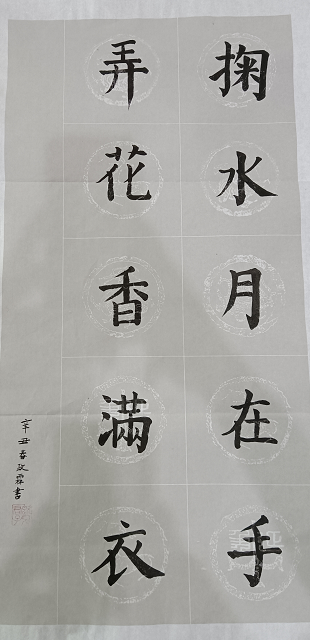 掬水月在手
弄花香滿衣
辛丑春政霖書